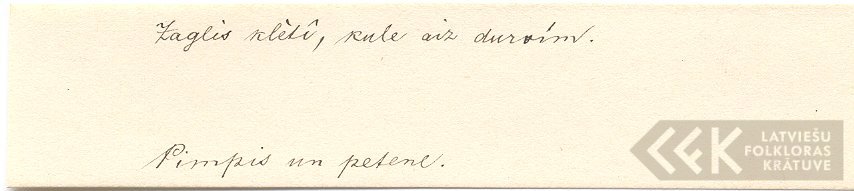 Zaglis klêtî, kule aiz durvîm.
Pimpis un petene.
LATVIEŠU
FOLKLORAS
KRĀTUVE